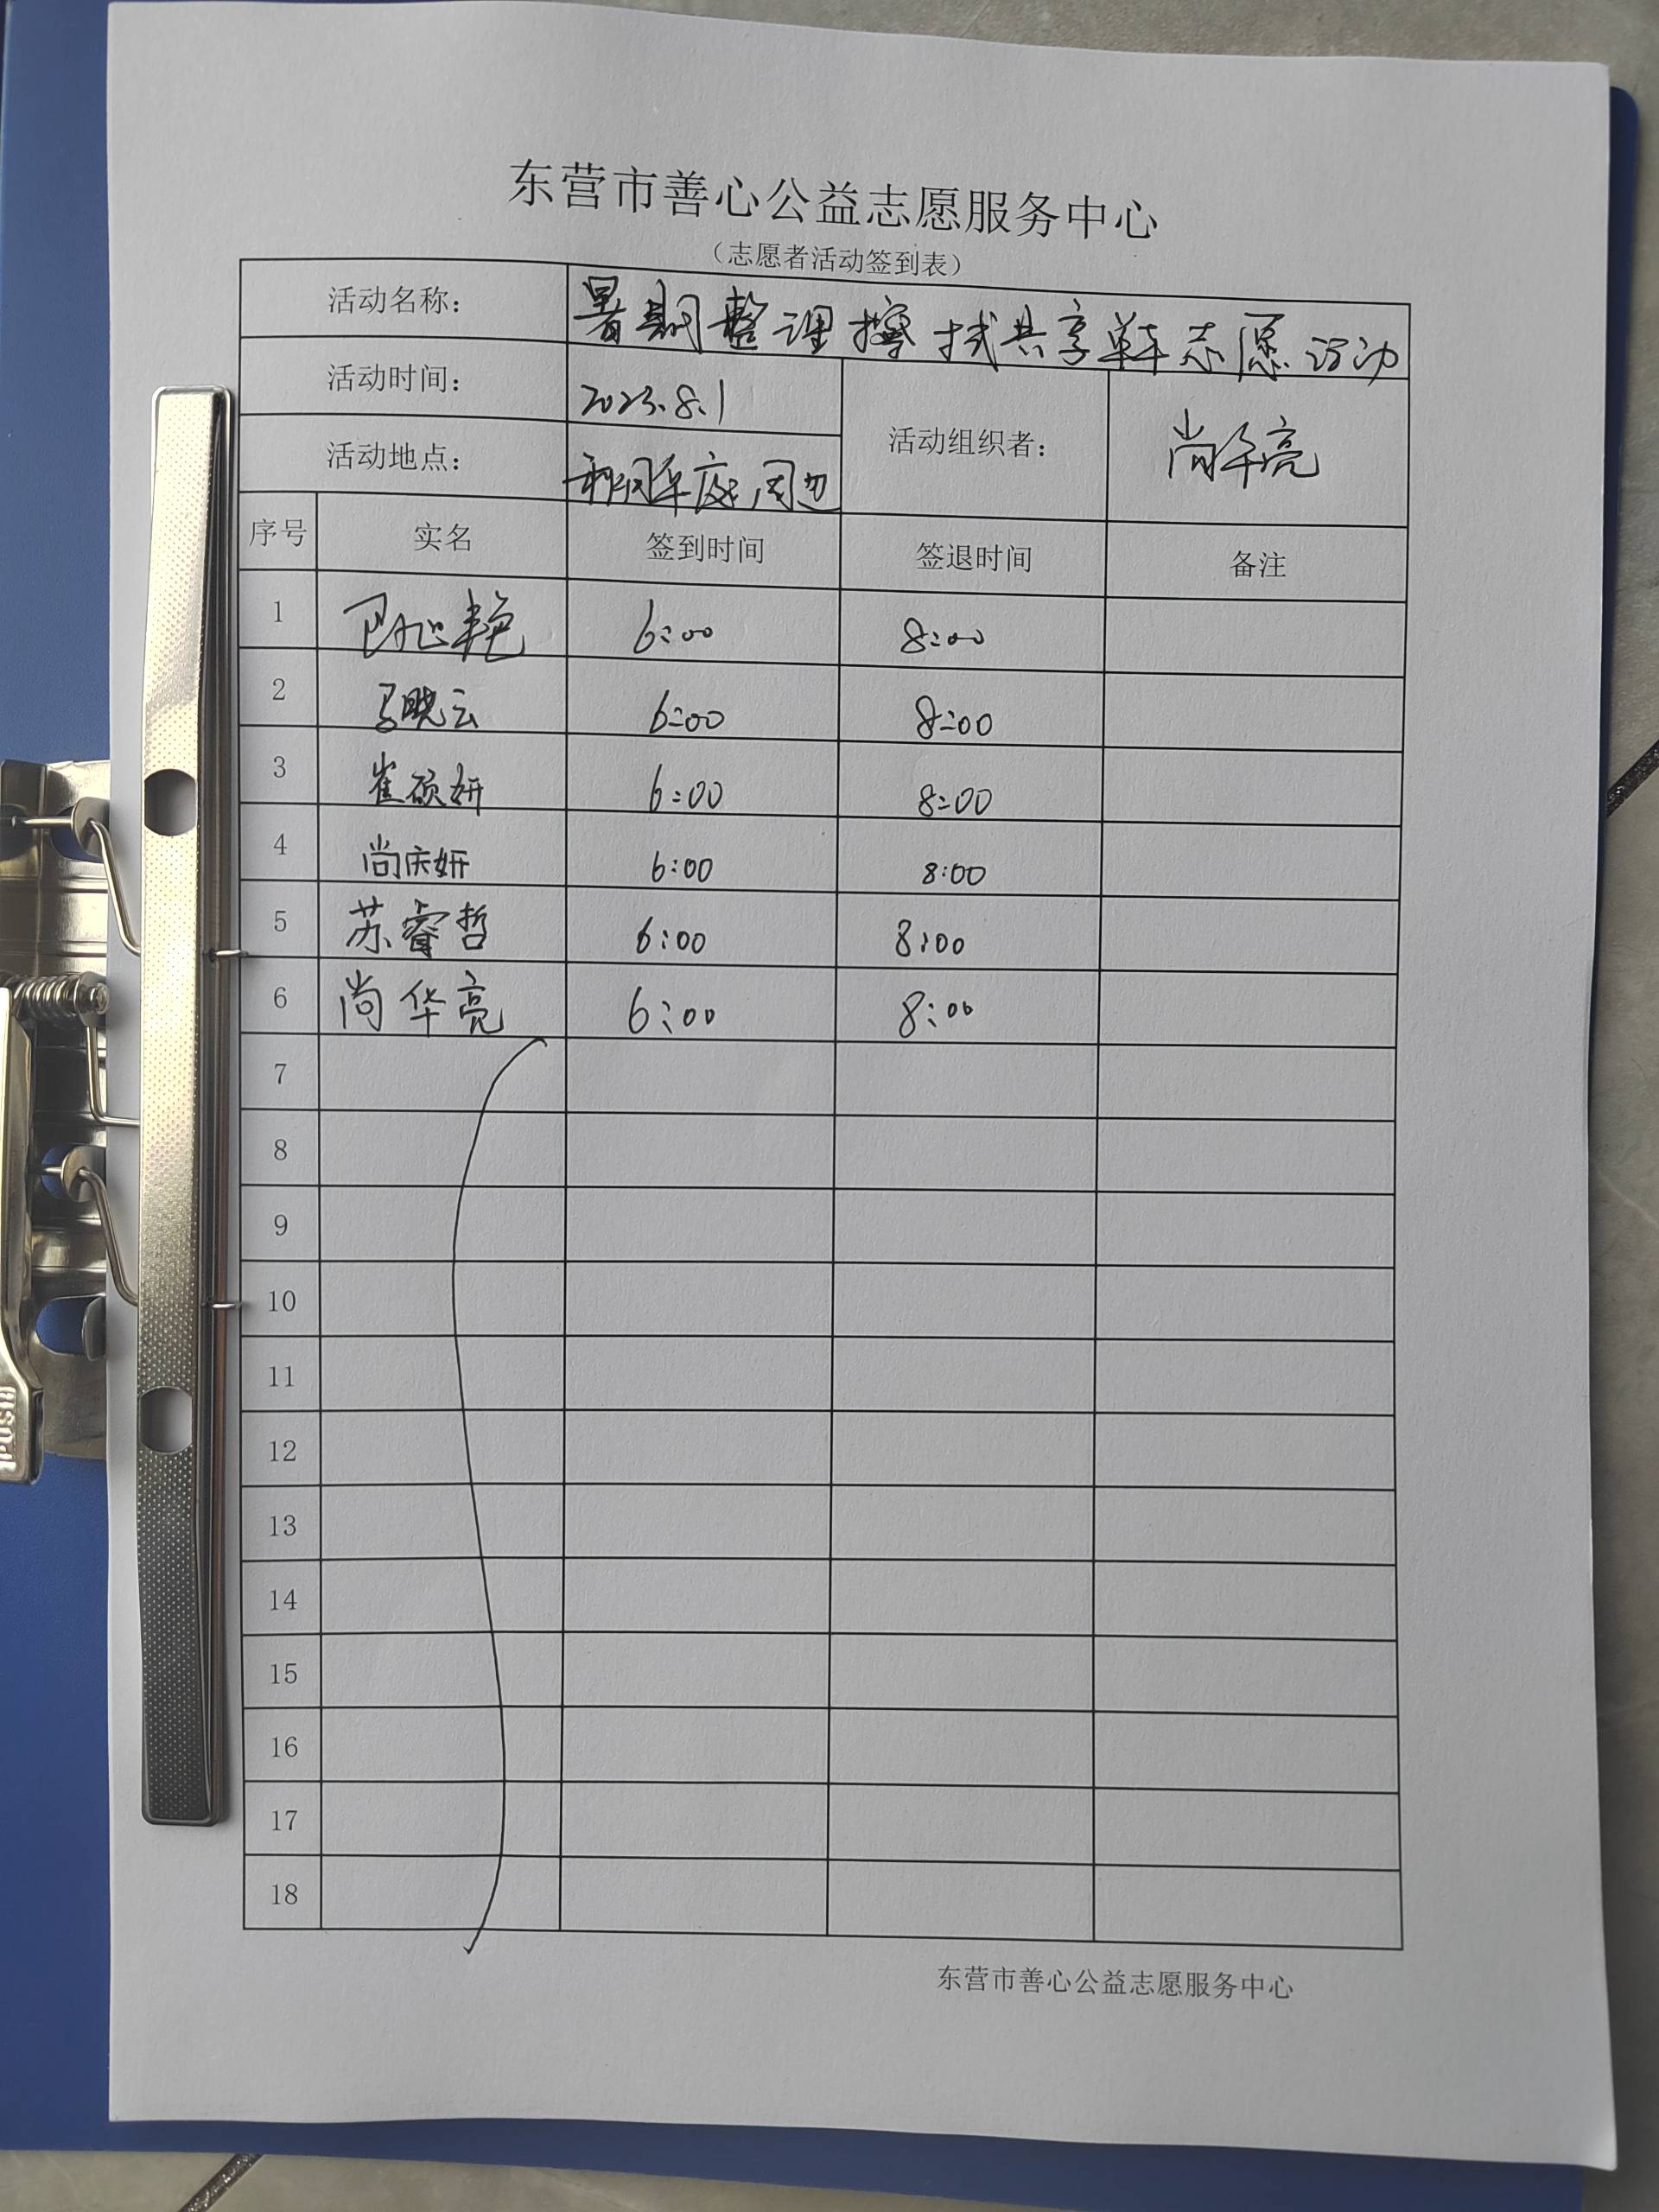 东营市善心公益志愿服务中心
（志愿者活动签到表）
活动名称： 暑期整理擦拭共享单车志愿活动
活动时间： 2023.8.1
活动组织者： 尚华亮
活动地点： 周边
序号 实名 签到时间 签退时间 备注
1 艳 6:00 8:00
2 马晓云 6:00 8:00
3 崔硕妍 6:00 8:00
4 尚庆妍 6:00 8:00
5 苏睿哲 6:00 8:00
6 尚华亮 6:00 8:00
7
8
9
10
11
12
13
14
15
16
17
18
东营市善心公益志愿服务中心